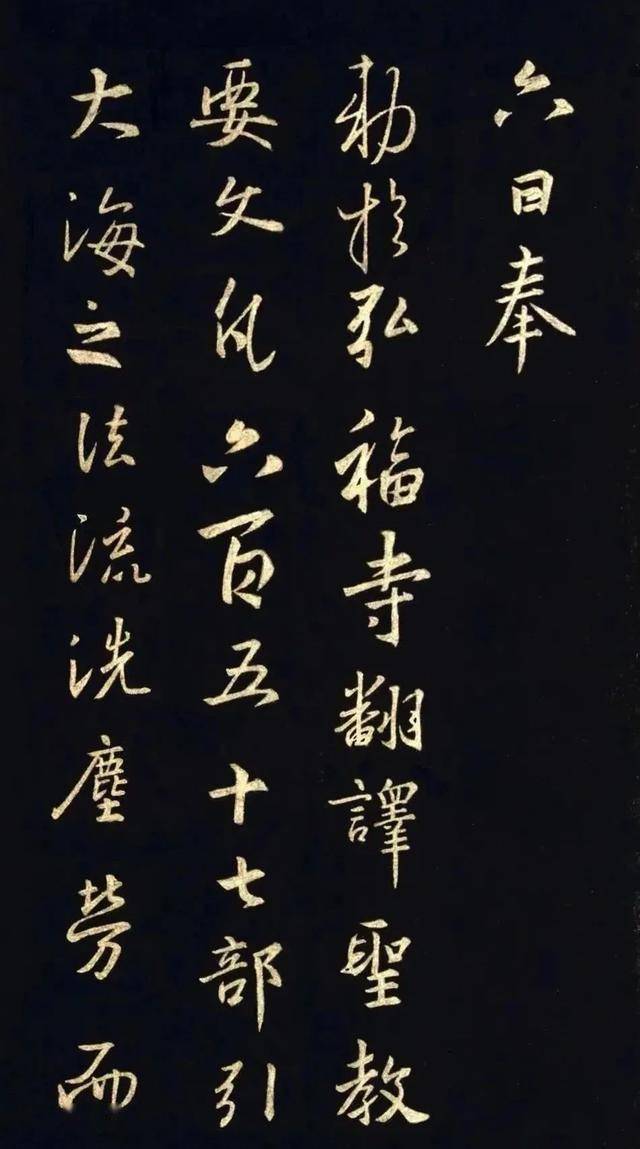 六日奉
勅於弘福寺翻譯聖教
要文凡六百五十七部引
大海之法流洗塵勞而